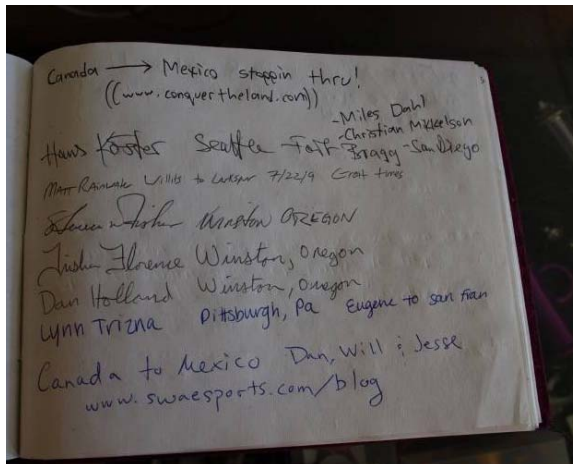 Canada → Mexico stoppin thru!
((www.conquertheland.com))
-Miles Dahl
-Christian Mikkelson
Hans Seattle - Fort Bragg - San Diego
Matt Rainwater Willits to Larkspur 7/22/9 Great times
Winston OREGON
Trisha Florence Winston, Oregon
Dan Holland Winston, Oregon
Lynn Trizna Pittsburgh, Pa Eugene to san fran
Canada to Mexico Dan, Will & Jesse
www.swaesports.com/blog